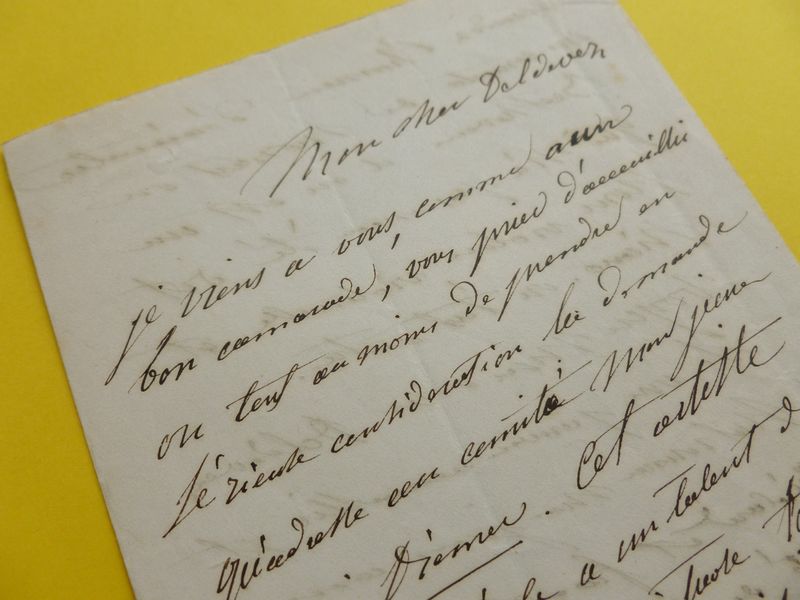 Mon cher Deldevez
je viens a vous, comme a un
bon camarade, vous prier d'accueillir
ou tout au moins de prendre en
sérieuse considération la demande
qu'adresse au comité Mon jeune
Diémer. Cet artiste
a un talent d